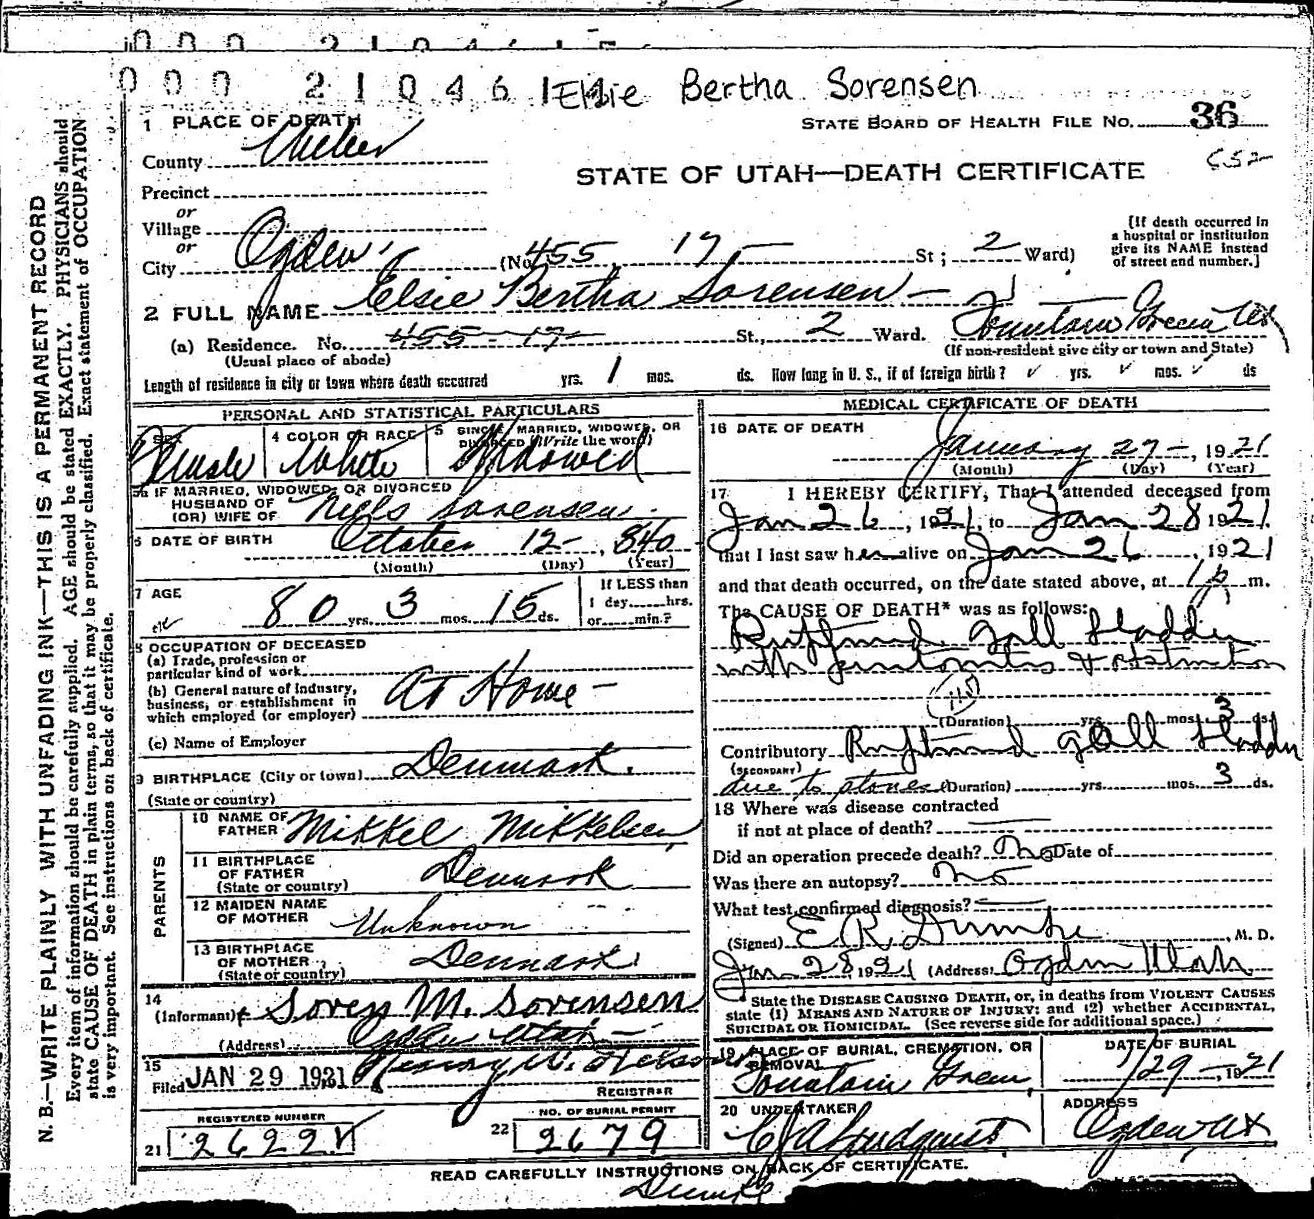 0 0 0 2 1 0 4 6 1
0 0 0 2 1 0 4 6 1 Elsie Bertha Sorensen
1 PLACE OF DEATH
STATE BOARD OF HEALTH FILE No. 36
County Weber
652
STATE OF UTAH—DEATH CERTIFICATE
Precinct
or
Village
or
City Ogden (No. 455, 17 St; 2 Ward)
[If death occurred in
a hospital or institution
give its NAME instead
of street end number.]
2 FULL NAME Elsie Bertha Sorensen
(a) Residence. No. 455-17- St., 2 Ward. Fountain Green Ut
(Usual place of abode) (If non-resident give city or town and State)
Length of residence in city or town where death occurred yrs. 1 mos. ds. How long in U. S., if of foreign birth? ✓ yrs. ✓ mos. ✓ ds
PERSONAL AND STATISTICAL PARTICULARS
SEX Female
4 COLOR OR RACE White
5 SINGLE, MARRIED, WIDOWED, OR
DIVORCED (Write the word) Widowed
5a IF MARRIED, WIDOWED, OR DIVORCED
HUSBAND OF
(OR) WIFE OF Niels Sorensen
6 DATE OF BIRTH October 12-, 1840
(Month) (Day) (Year)
7 AGE
80 yrs. 3 mos. 15 ds.
If LESS than
1 day......hrs.
or......min.?
8 OCCUPATION OF DECEASED
(a) Trade, profession or
particular kind of work
(b) General nature of industry,
business, or establishment in
which employed (or employer) At Home-
(c) Name of Employer
9 BIRTHPLACE (City or town) Denmark.
(State or country)
PARENTS
10 NAME OF
FATHER Mikkel Mikkelsen
11 BIRTHPLACE
OF FATHER
(State or country) Denmark
12 MAIDEN NAME
OF MOTHER Unknown
13 BIRTHPLACE
OF MOTHER
(State or country) Denmark
14
(Informant) Soren M. Sorensen
(Address) Ogden Utah
15
Filed JAN 29 1921 Henry W. Nelson
REGISTRAR
REGISTERED NUMBER
21 2622
NO. OF BURIAL PERMIT
22 2679
MEDICAL CERTIFICATE OF DEATH
16 DATE OF DEATH
January 27-, 1921
(Month) (Day) (Year)
17 I HEREBY CERTIFY, That I attended deceased from
Jan 26, 1921, to Jan 28 1921
that I last saw her alive on Jan 26, 1921
and that death occurred, on the date stated above, at 1 p m.
The CAUSE OF DEATH* was as follows:
Ruptured gall bladder
with peritonitis & obstruction
115
(Duration) yrs. mos. 3 ds.
Contributory Ruptured gall bladder
(SECONDARY)
due to stones (Duration) yrs. mos. 3 ds.
18 Where was disease contracted
if not at place of death?
Did an operation precede death? No Date of
Was there an autopsy? no
What test confirmed diagnosis?
(Signed) E. R. Dumke, M. D.
Jan 28 1921 (Address) Ogden Utah
*State the DISEASE CAUSING DEATH, or, in deaths from VIOLENT CAUSES
state (1) MEANS AND NATURE OF INJURY; and (2) whether ACCIDENTAL,
SUICIDAL OR HOMICIDAL. (See reverse side for additional space.)
19 PLACE OF BURIAL, CREMATION, OR
REMOVAL
Fountain Green,
DATE OF BURIAL
1/29-, 1921
20 UNDERTAKER
C J A Lindquist
ADDRESS
Ogden, Ut
READ CAREFULLY INSTRUCTIONS ON BACK OF CERTIFICATE.
Dumke
N. B.—WRITE PLAINLY WITH UNFADING INK—THIS IS A PERMANENT RECORD
Every item of information should be carefully supplied. AGE should be stated EXACTLY. PHYSICIANS should
state CAUSE OF DEATH in plain terms, so that it may be properly classified. Exact statement of OCCUPATION
is very important. See instructions on back of certificate.